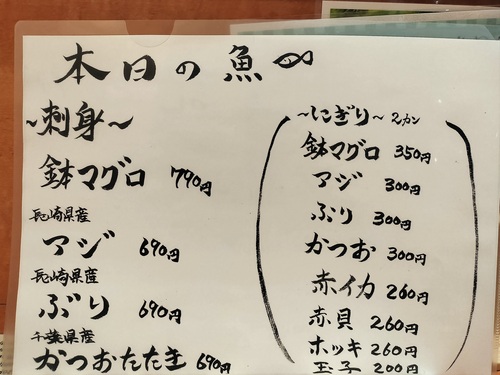 本日の魚
~刺身~
鉢マグロ 790円
長崎県産
アジ 690円
長崎県産
ぶり 690円
千葉県産
かつおたたき 690円
~にぎり~ 2カン
鉢マグロ 350円
アジ 300円
ぶり 300円
かつお 300円
赤イカ 260円
赤貝 260円
ホッキ 260円
玉子 200円